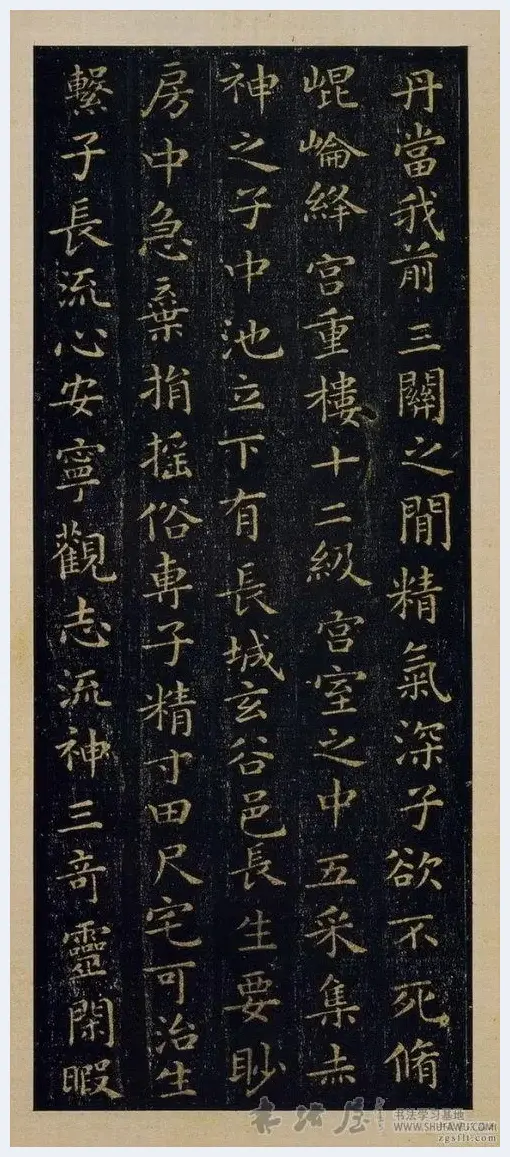 丹當我前三關之閒精氣深子欲不死脩
崐崘絳宫重樓十二級宫室之中五采集赤
神之子中池立下有長城玄谷邑長生要眇
房中急棄捐揺俗專子精寸田尺宅可治生
繫子長流心安寧觀志流神三奇靈閑暇
书法屋
书法学习基地
WWW.SHUFAWU.COM
zgsflt.com